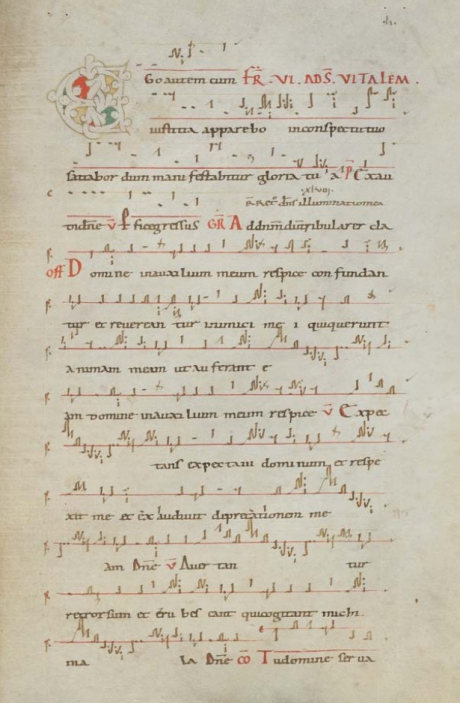 Go autem cum FR̄. VI. AD S̄. VITALEM.
iustitia apparebo inconspectu tuo
satiabor dum manifestabitur gloria tu a p̄ Exau
xlviii
didn̄e v̄ p̄ficegressus GR̄ Addn̄m dum tribularer cla
off Domine inauxilium meum respice confundan
tur et reverean tur inimici me i quiquerunt
animam meum ut auferant e
am domine inauxilium meum respice v̄ Expec
tans expectavi dominum et respe
xit me et exaudivit deprecationem me
am Dn̄e v̄ Aver tan tur
retrorsum et eru bes cant quicogitant michi
ma la Dn̄e cō Tu domine serva